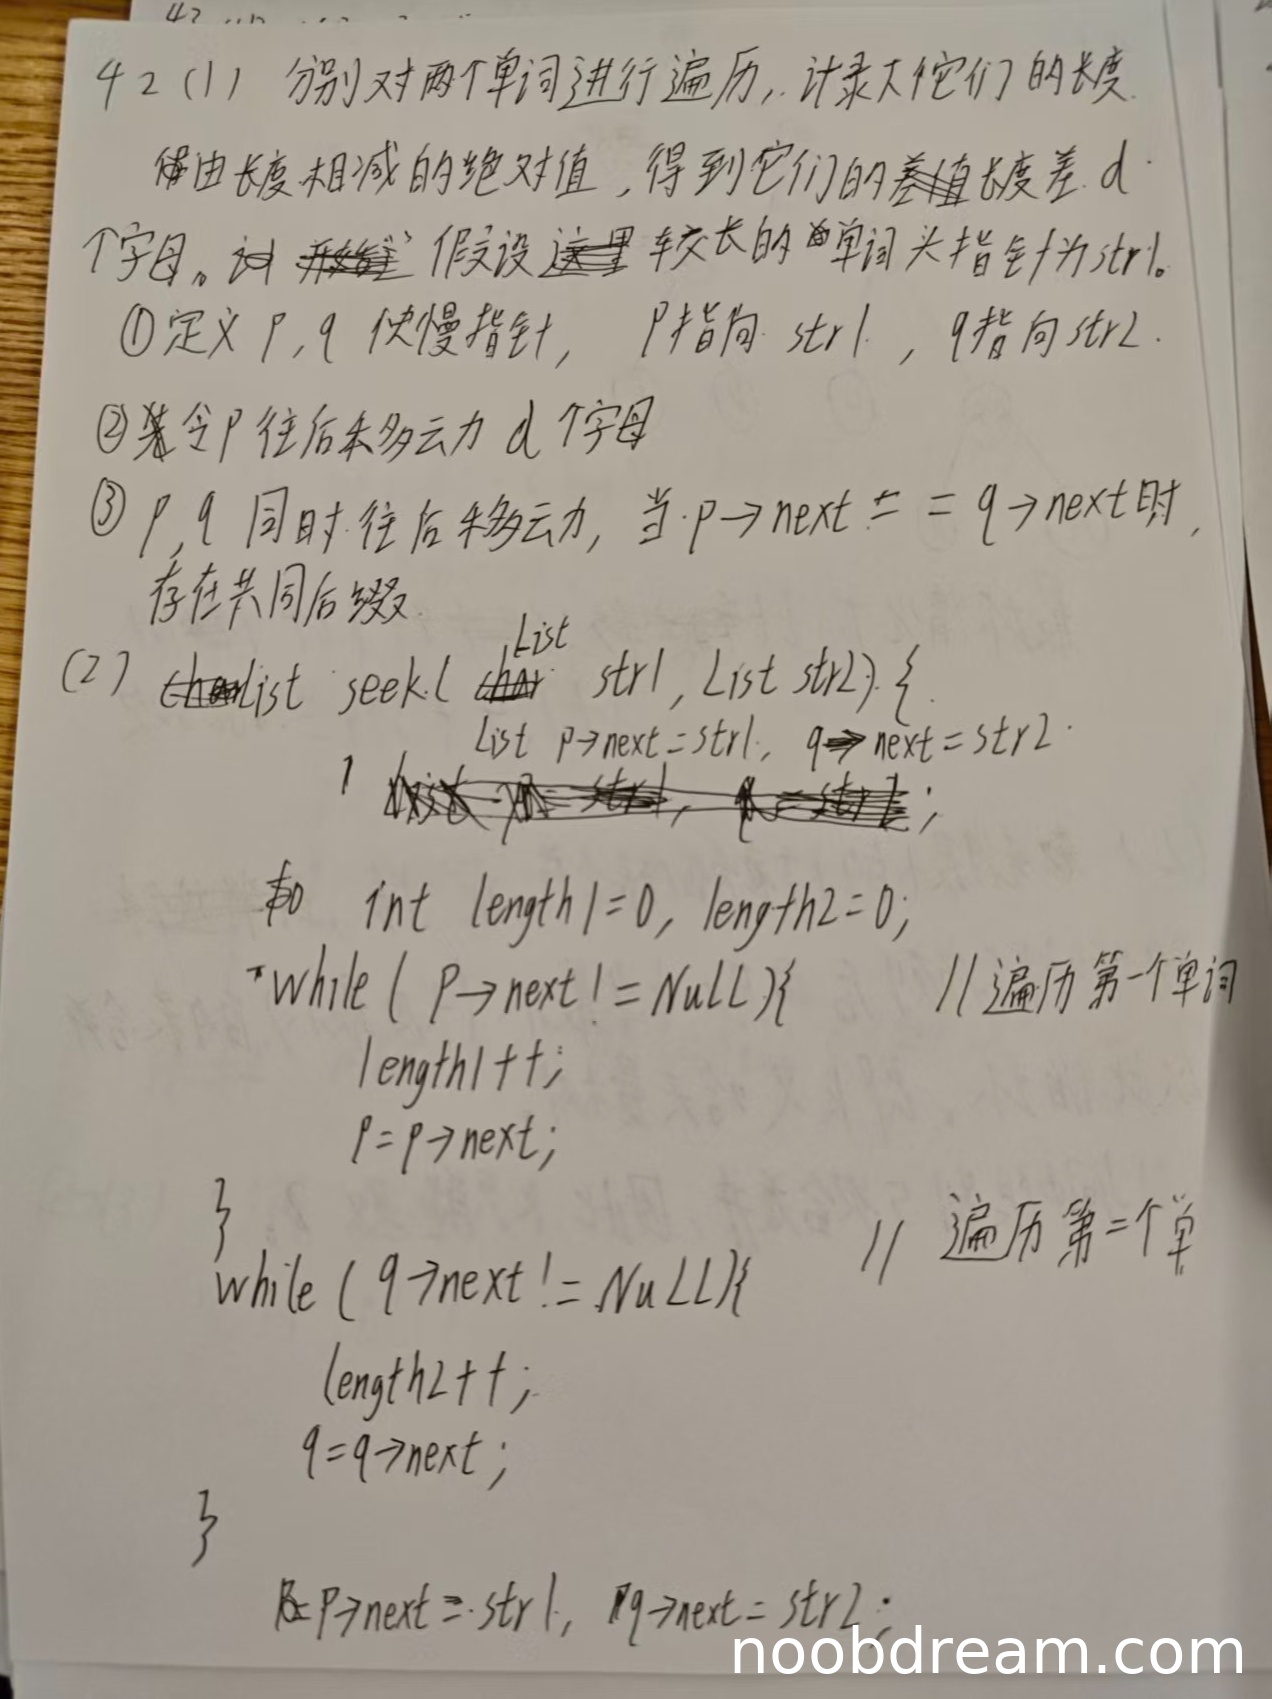 42(1) 分别对两个单词进行遍历,记录下它们的长度.
由长度相减的绝对值,得到它们的长度差 d
个字母。假设 较长的单词头指针为str1。
①定义 p,q 快慢指针, p指向 str1, q指向str2.
②令p往后移动 d 个字母
③ p,q 同时往后移动,当p→next == q→next时,
存在共同后缀.
(2) List seek( List str1, List str2) {
List p→next=str1, q→next=str2.
;
int length1=0, length2=0;
while( p→next!=NuLL){ //遍历第一个单词
length1++;
p=p→next;
}
while( q→next!=NuLL){ // 遍历第二个单
length2++;
q=q→next;
}
p→next=str1, q→next=str2;
noobdream.com